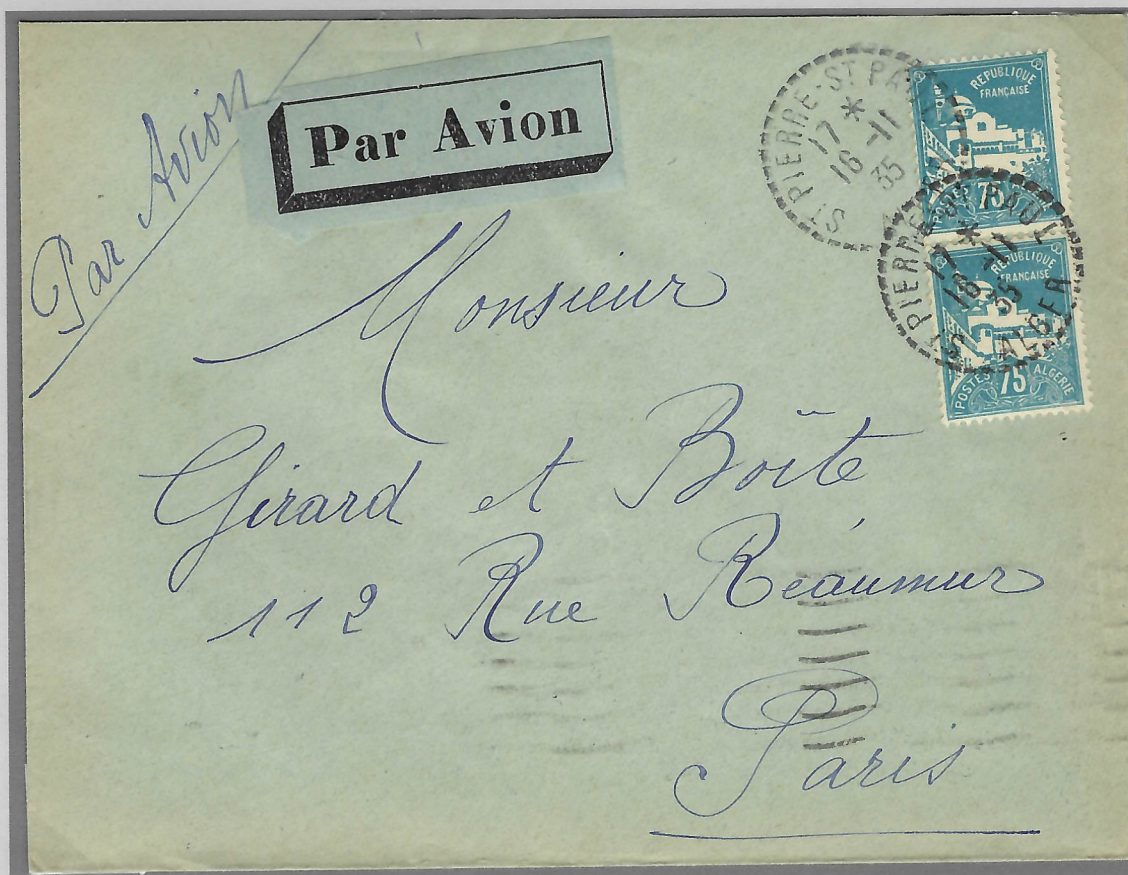 Par Avion
Par Avion
ST PIERRE-ST PAUL
17 *
16 -11
35
REPUBLIQUE
FRANÇAISE
75
ST PIERRE-ST PAUL
ALGER
17 *
16 -11
35
REPUBLIQUE
FRANÇAISE
POSTES 75 ALGERIE
Monsieur
Girard et Boîte
112 Rue Réaumur
Paris